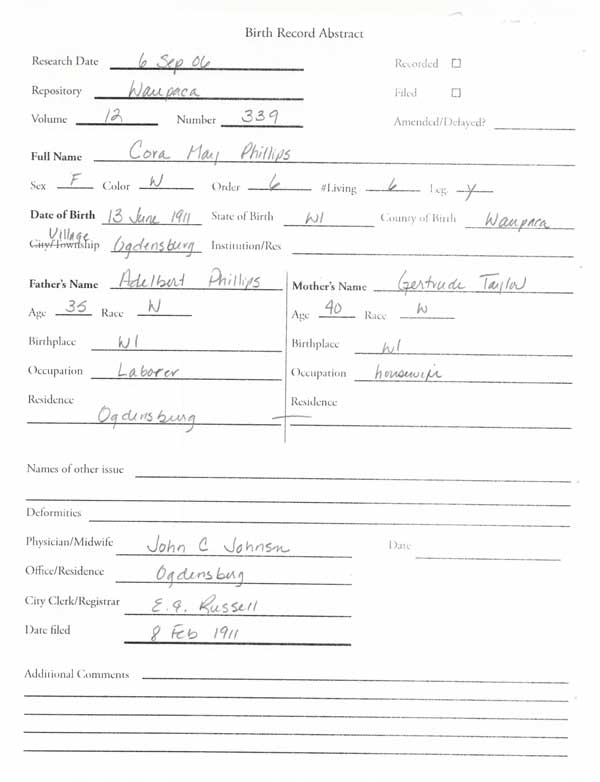 Birth Record Abstract
Research Date 6 Sep 06 Recorded ☐
Repository Waupaca Filed ☐
Volume 12 Number 339 Amended/Delayed?
Full Name Cora May Phillips
Sex F Color W Order 6 #Living 6 Leg. y
Date of Birth 13 June 1911 State of Birth WI County of Birth Waupaca
Village
City/Township Ogdensburg Institution/Res
Father's Name Adelbert Phillips Mother's Name Gertrude Taylor
Age 35 Race W Age 40 Race W
Birthplace WI Birthplace WI
Occupation Laborer Occupation housewife
Residence Residence
Ogdensburg —
Names of other issue
Deformities
Physician/Midwife John C Johnsn Date
Office/Residence Ogdensburg
City Clerk/Registrar E. Russell
Date filed 8 Feb 1911
Additional Comments